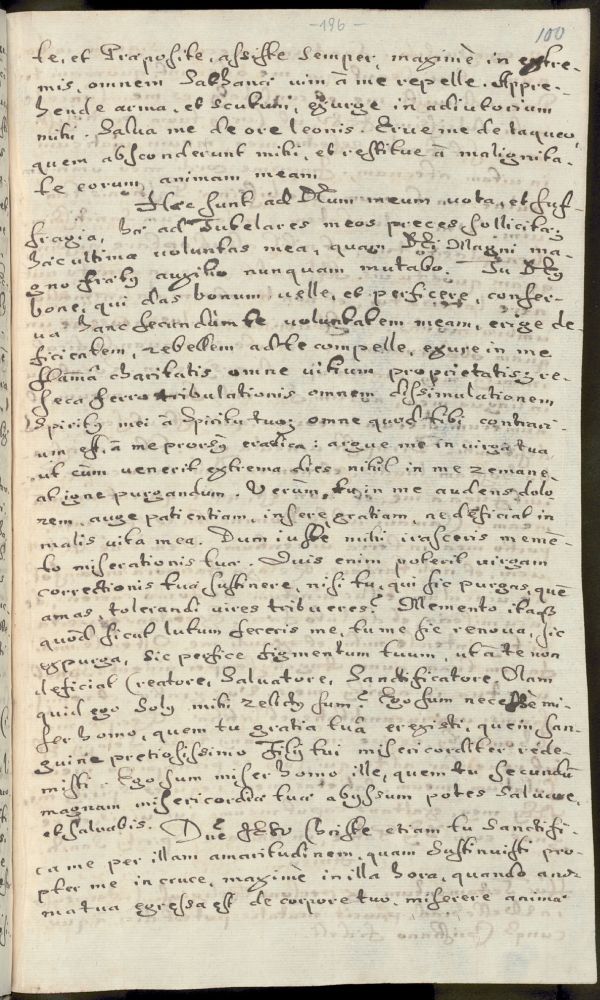 -196-
100
te, et Præposite, assiste semper, maximè in extre-
mis, omnem Sathanæ uim à me repelle. Appre-
hende arma, et scutum, exurge in adiutorium
mihi. Salua me de ore leonis. Erue me de laqueo,
quem absconderunt mihi, et restitue à malignita-
te eorum, animam meam.
Hæc sunt ad meum uota, et suf-
fragia, hæ ad Tutelares meos preces sollicitæ;
hæc ultima uoluntas mea, quam Magni ma-
gno auxilio nunquam mutabo. Tu
bone, qui das bonum uelle, et perficere, confer-
ua hanc secundùm te uoluntatem meam, erige de-
ficientem, rebellem ad te compelle, exure in me
flamâ charitatis omne uitium proprietatis, re-
seca ferro tribulationis omnem dissimulationem
Spiritus mei à Spiritu tuo; omne quod tibi contrari-
um est, à me prorsus eradica: argue me in uirga tua
ut cùm uenerit extrema dies, nihil in me remane-
at igne purgandum. Verùm, tu in me audens dolo-
rem, auge patientiam, insere gratiam, ne deficiat in
malis uita mea. Dum iustè mihi irasceris memen-
to miserationis tuæ. Quis enim poterit uirgam
correctionis tuæ sustinere, nisi tu, qui sic purgas, quē
amas, tolerandi uires tribueres? Memento itaque
quòd sicut lutum feceris me, tu me sic renoua, sic
expurga, sic perfice figmentum tuum, ut à te non
deficiat Creatore, Saluatore, Sanctificatore. Nam
quid ego solus mihi relictus sum? Ego sum necesse mi-
ser homo, quem tu gratia tuâ eregisti, quem san-
guine pretiosissimo Filij tui misericorditer rede-
misti. Ego sum miser homo ille, quem tu secundū
magnam misericordiæ tuæ abyssum potes saluare,
et saluabis. Dñe JESU Christe etiam tu sanctifi-
ca me per illam amaritudinem, quam sustinuisti pro-
pter me in cruce, maximè in illa hora, quando ani-
ma tua egressa est de corpore tuo, miserere animæ